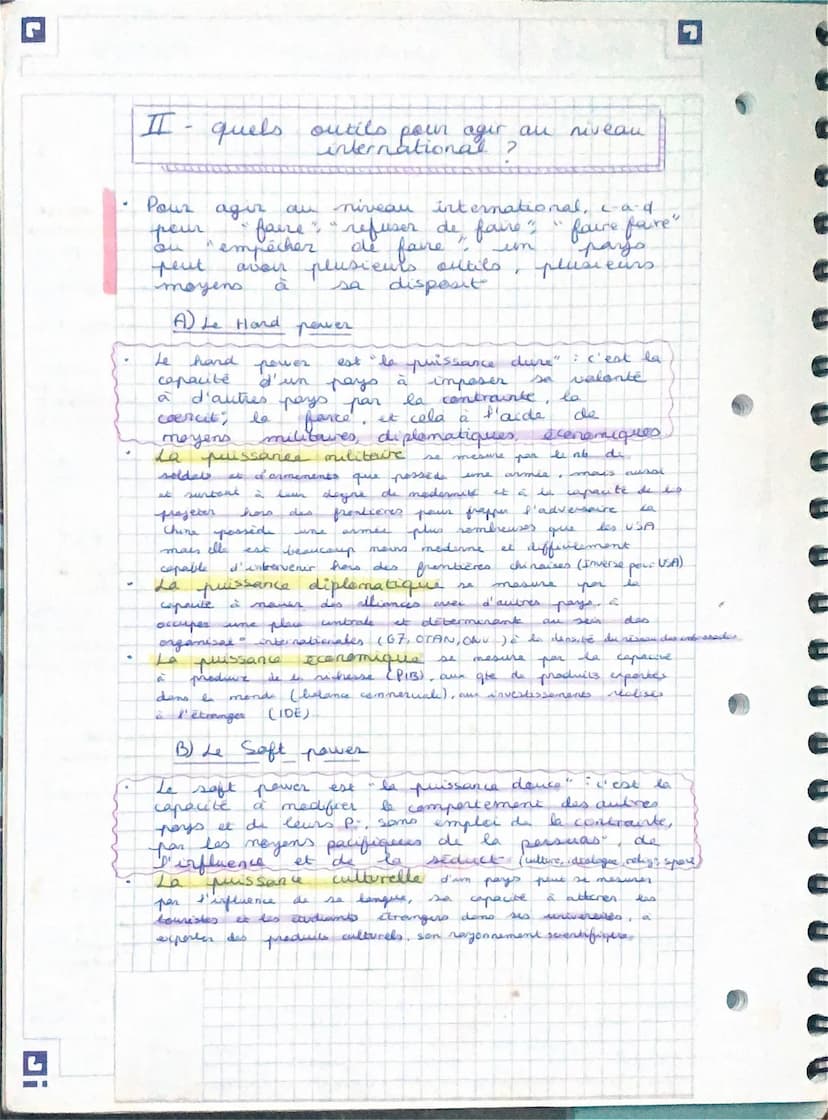 II - quels outils pour agir au niveau
international ?
• Pour agir au niveau international, c-a-d
pour "faire", "refuser de faire", "faire faire"
ou "empêcher de faire", un pays
peut avoir plusieurs outils, plusieurs
moyens à sa disposit°
A) Le Hard power
• Le hard power est "la puissance dure" : c'est la
capacité d'un pays à imposer sa volonté
à d'autres pays par la contrainte, la
coercit°, la force, et cela à l'aide de
moyens militaires, diplomatiques, économiques
• La puissance militaire se mesure par le nb de
soldats et d'armements que possède une armée, mais aussi
et surtout à leur degré de modernité et à la capacité de les
projeter hors des frontières pour frapper l'adversaire La
Chine possède une armée plus nombreuses que les USA
mais elle est beaucoup moins moderne et difficilement
capable d'intervenir hors des frontières chinoises (Inverse pour USA)
• La puissance diplomatique se mesure par la
capacité à nouer des alliances avec d'autres pays, à
occuper une place centrale et déterminante au sein des
organisat° internationales (G7, OTAN, ONU) à la densité du réseau des ambassades
• La puissance économique se mesure par la capacité
à produire de la richesse (PIB), aux qte de produits exportés
dans le monde (balance commerciale), aux investissements réalisés
à l'étranger (IDE)
B) Le Soft power
• Le soft power est "la puissance douce" : c'est la
capacité à modifier le comportement des autres
pays et de leurs P°, sans emploi de la contrainte,
par les moyens pacifiques de la persuas°, de
l'influence et de la séduct° (culture, idéologie, relig°, sport)
• La puissance culturelle d'un pays peut se mesurer
par l'influence de sa langue, sa capacité à attirer les
touristes et les étudiants étrangers dans ses universités, à
exporter des produits culturels, son rayonnement scientifique.